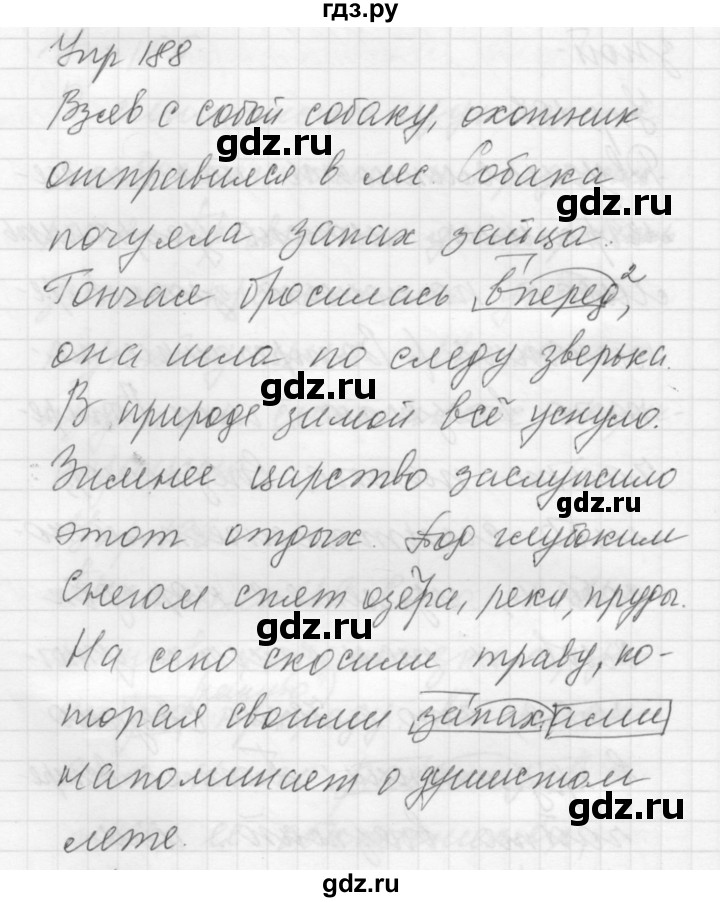 гдз.ру
Упр 188
Взяв с собой собаку, охотник
gdz.ru
отправился в лес Собака
gdz.ru
почуяла запах зайца.
Гончая бросилась вперед,²
она шла по следу зверька.
gdz.ru
В природе зимой всё уснуло.
Зимнее царство заслужило
gdz.ru
этот отдых. Под глубоким
снегом спят озёра, реки, пруды.
gdz.ru
На сено скосили траву, ко-
торая своими запахами
напоминает о душистом
gdz.ru
лете.
gdz.ru